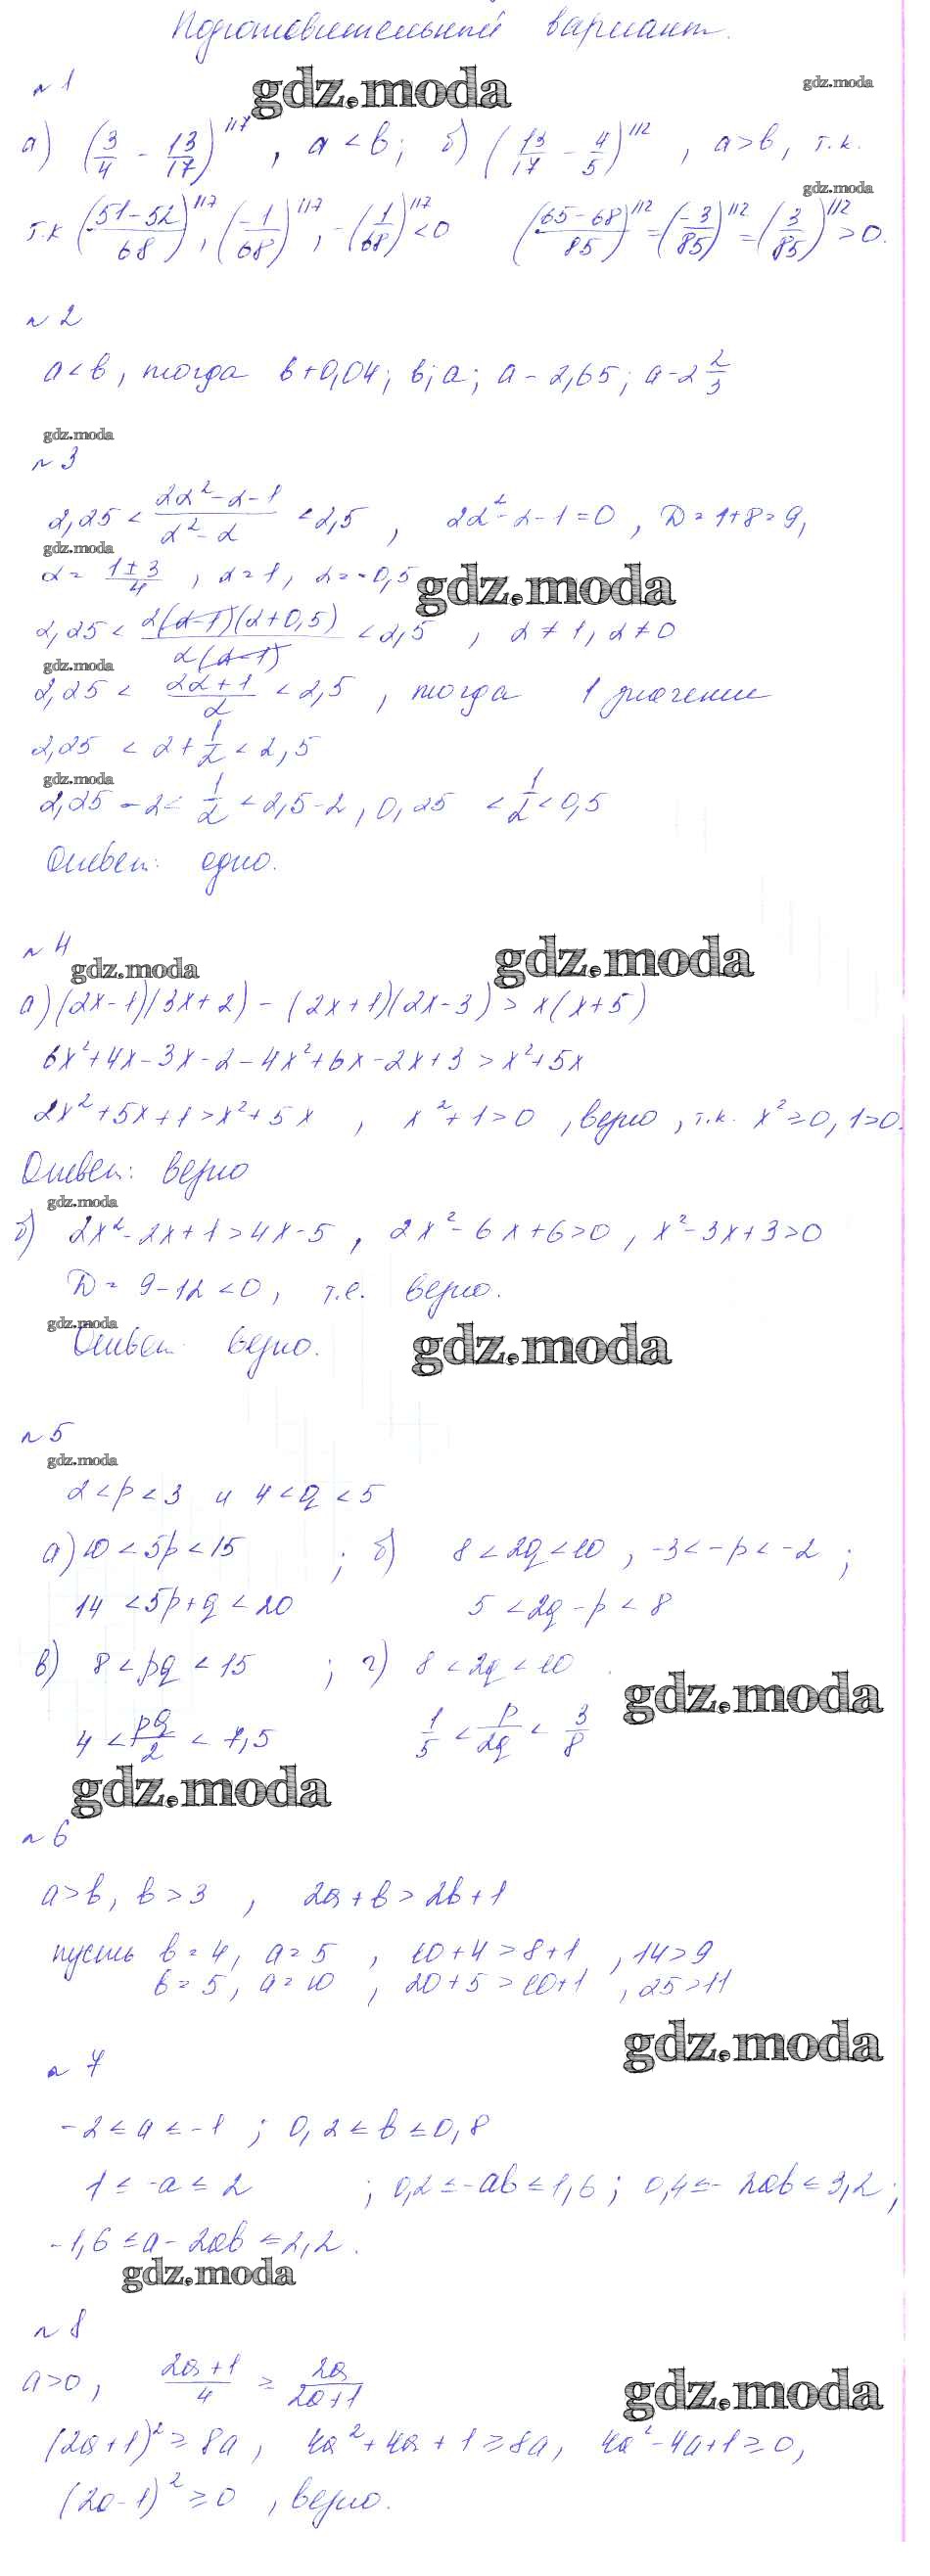 Подготовительный вариант.
n 1
gdz.moda
gdz.moda
а) (3/4 - 13/17)^117, a < b; б) (13/17 - 4/5)^112, a > b, т.к.
gdz.moda
т.к ((51-52)/68)^117, (-1/68)^117, -(1/68)^117 < 0 ((65-68)/85)^112 = (-3/85)^112 = (3/85)^112 > 0.
n 2
a < b, тогда b+0,04; b; a; a - 2,65; a - 2 2/3
gdz.moda
n 3
2,25 < (2α² - α - 1)/(α² - α) < 2,5, 2α² - α - 1 = 0, D = 1+8 = 9,
gdz.moda
α = (1±3)/4, α = 1, α = -0,5
gdz.moda
2,25 < 2(α-1)(α+0,5)/α(α-1) < 2,5, α ≠ 1, α ≠ 0
gdz.moda
2,25 < (2α+1)/α < 2,5, тогда 1 значение
2,25 < 2 + 1/2 < 2,5
gdz.moda
2,25 - 2 < 1/2 < 2,5 - 2, 0,25 < 1/2 < 0,5
Ответ: одно.
n 4
gdz.moda
gdz.moda
а) (2x-1)(3x+2) - (2x+1)(2x-3) > x(x+5)
6x²+4x-3x-2-4x²+6x-2x+3 > x²+5x
2x²+5x+1 > x²+5x, x²+1 > 0, верно, т.к. x² ≥ 0, 1 > 0.
Ответ: верно
gdz.moda
б) 2x²-2x+1 > 4x-5, 2x²-6x+6 > 0, x²-3x+3 > 0
D = 9-12 < 0, т.е. верно.
gdz.moda
Ответ: верно.
gdz.moda
n 5
gdz.moda
2 < p < 3 и 4 < q < 5
а) 10 < 5p < 15; б) 8 < 2q < 10, -3 < -p < -2;
14 < 5p+q < 20 5 < 2q-p < 8
в) 8 < pq < 15; г) 8 < 2q < 10
gdz.moda
4 < pq/2 < 7,5 1/5 < p/2q < 3/8
gdz.moda
n 6
a > b, b > 3, 2a+b > 2b+1
пусть b = 4, a = 5, 10+4 > 8+1, 14 > 9
b = 5, a = 10, 20+5 > 10+1, 25 > 11
gdz.moda
n 7
-2 ≤ a ≤ -1; 0,2 ≤ b ≤ 0,8
1 ≤ -a ≤ 2; 0,2 ≤ -ab ≤ 1,6; 0,4 ≤ -2ab ≤ 3,2;
-1,6 ≤ a - 2ab ≤ 2,2.
gdz.moda
n 8
a > 0, (2a+1)/4 ≥ 2a/(2a+1)
gdz.moda
(2a+1)² ≥ 8a, 4a²+4a+1 ≥ 8a, 4a²-4a+1 ≥ 0,
(2a-1)² ≥ 0, верно.